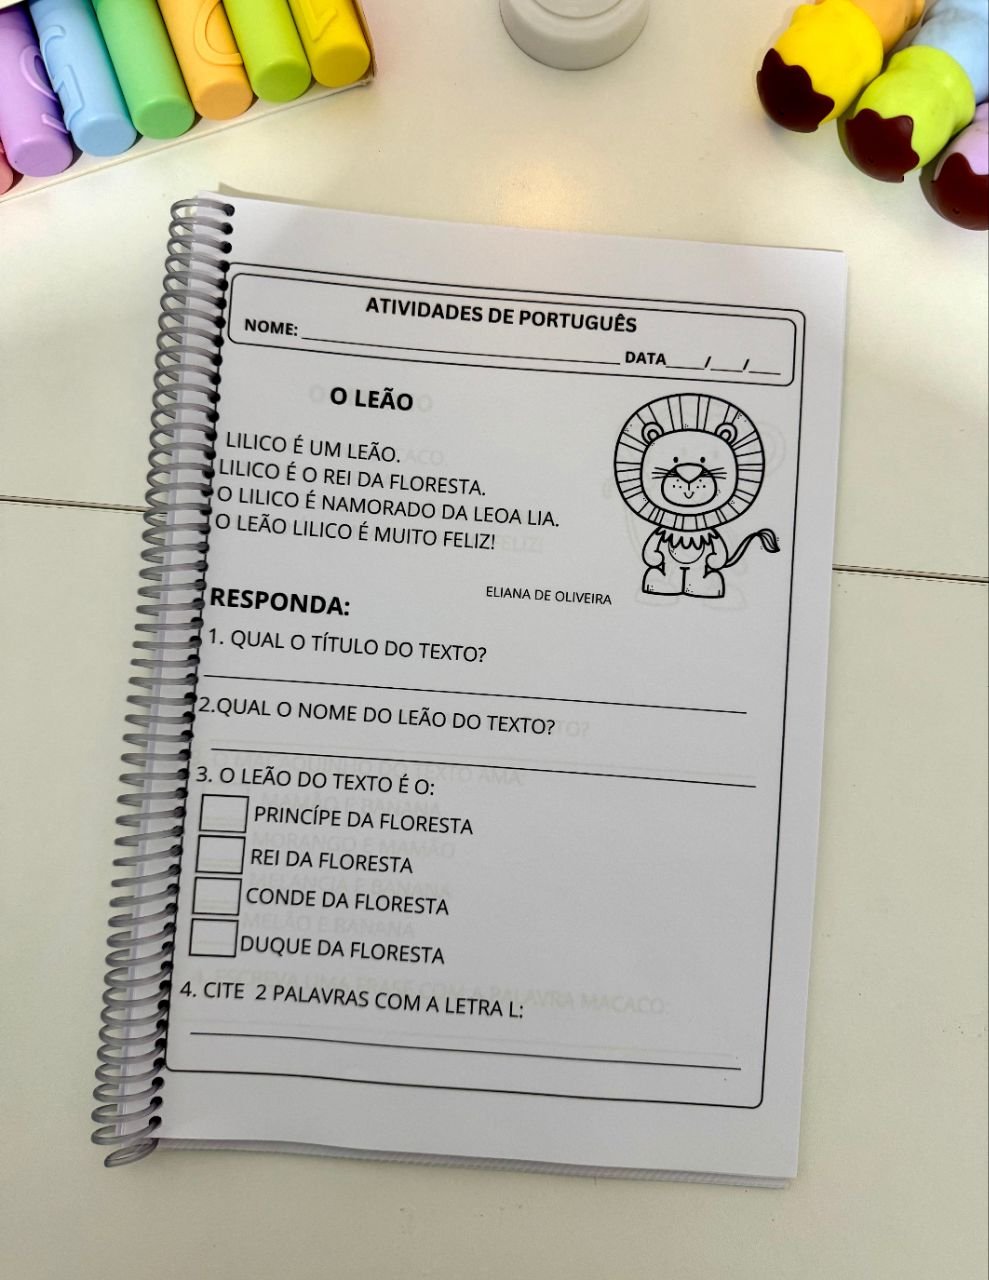 ATIVIDADES DE PORTUGUÊS
NOME: ______________________ DATA____/____/____
O LEÃO
LILICO É UM LEÃO.
LILICO É O REI DA FLORESTA.
O LILICO É NAMORADO DA LEOA LIA.
O LEÃO LILICO É MUITO FELIZ!
ELIANA DE OLIVEIRA
RESPONDA:
1. QUAL O TÍTULO DO TEXTO?
2.QUAL O NOME DO LEÃO DO TEXTO?
3. O LEÃO DO TEXTO É O:
PRINCÍPE DA FLORESTA
REI DA FLORESTA
CONDE DA FLORESTA
DUQUE DA FLORESTA
4. CITE 2 PALAVRAS COM A LETRA L: